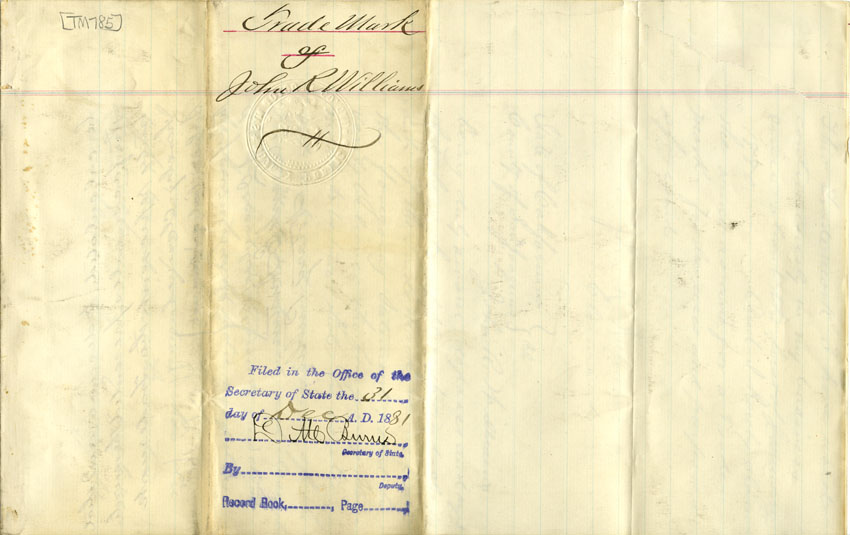 [TM785]
Trade Mark
of
John R Williams
Filed in the Office of the
Secretary of State the 31
day of Dec A. D. 1881
D M Burns
Secretary of State.
By
Deputy.
Record Book, Page